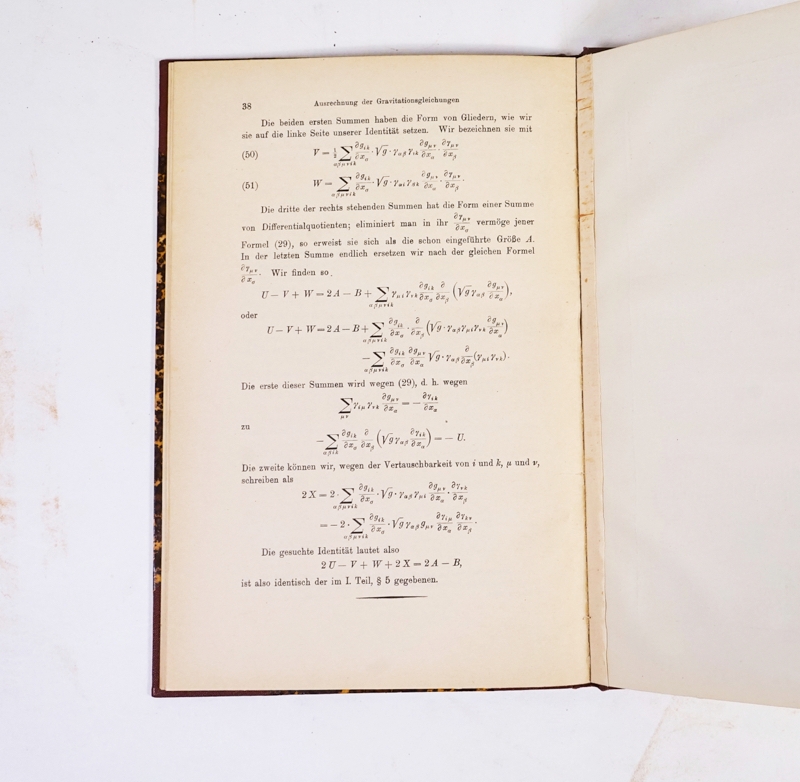 38 Ausrechnung der Gravitationsgleichungen
Die beiden ersten Summen haben die Form von Gliedern, wie wir
sie auf die linke Seite unserer Identität setzen. Wir bezeichnen sie mit
(50) V = ½ ∑_{αβμνik} ∂g_{ik}/∂x_α · √g · γ_{αβ} γ_{ik} ∂g_{μν}/∂x_α · ∂γ_{μν}/∂x_β
(51) W = ∑_{αβμνik} ∂g_{ik}/∂x_α · √g · γ_{αi} γ_{βk} ∂g_{μν}/∂x_α · ∂γ_{μν}/∂x_β.
Die dritte der rechts stehenden Summen hat die Form einer Summe
von Differentialquotienten; eliminiert man in ihr ∂γ_{μν}/∂x_α vermöge jener
Formel (29), so erweist sie sich als die schon eingeführte Größe A.
In der letzten Summe endlich ersetzen wir nach der gleichen Formel
∂γ_{μν}/∂x_α. Wir finden so
U − V + W = 2A − B + ∑_{αβμνik} γ_{μi} γ_{νk} ∂g_{ik}/∂x_α ∂/∂x_β (√g γ_{αβ} ∂g_{μν}/∂x_α),
oder
U − V + W = 2A − B + ∑_{αβμνik} ∂g_{ik}/∂x_α · ∂/∂x_β (√g · γ_{αβ} γ_{μi} γ_{νk} ∂g_{μν}/∂x_α)
− ∑_{αβμνik} ∂g_{ik}/∂x_α ∂g_{μν}/∂x_α √g · γ_{αβ} ∂/∂x_β (γ_{μi} γ_{νk}).
Die erste dieser Summen wird wegen (29), d. h. wegen
∑_{μν} γ_{iμ} γ_{νk} ∂g_{μν}/∂x_α = − ∂γ_{ik}/∂x_α
zu
− ∑_{αβik} ∂g_{ik}/∂x_α ∂/∂x_β (√g γ_{αβ} ∂γ_{ik}/∂x_α) = − U.
Die zweite können wir, wegen der Vertauschbarkeit von i und k, μ und ν,
schreiben als
2X = 2 · ∑_{αβμνik} ∂g_{ik}/∂x_α · √g · γ_{αβ} γ_{μi} ∂g_{μν}/∂x_α · ∂γ_{νk}/∂x_β
= − 2 · ∑_{αβμνik} ∂g_{ik}/∂x_α · √g γ_{αβ} g_{μν} ∂γ_{iμ}/∂x_α ∂γ_{kν}/∂x_β.
Die gesuchte Identität lautet also
2U − V + W + 2X = 2A − B,
ist also identisch der im I. Teil, § 5 gegebenen.